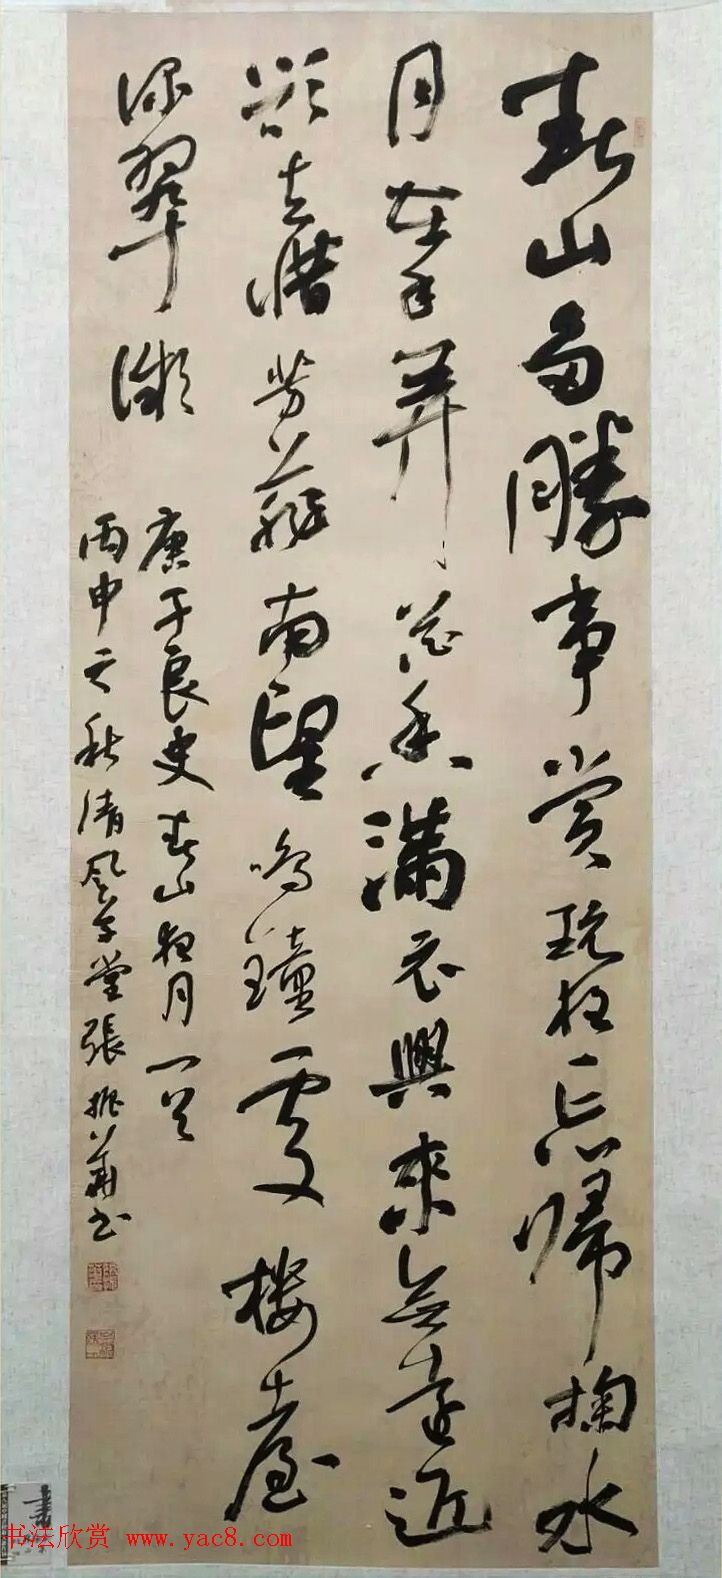 春山多勝事賞玩夜忘歸掬水
月在手弄花香滿衣興來無遠近
欲去惜芳菲南望鳴鐘處樓臺
深翠微
唐于良史春山夜月一首
丙申之秋清風草堂張振華書
书法欣赏 www.yac8.com